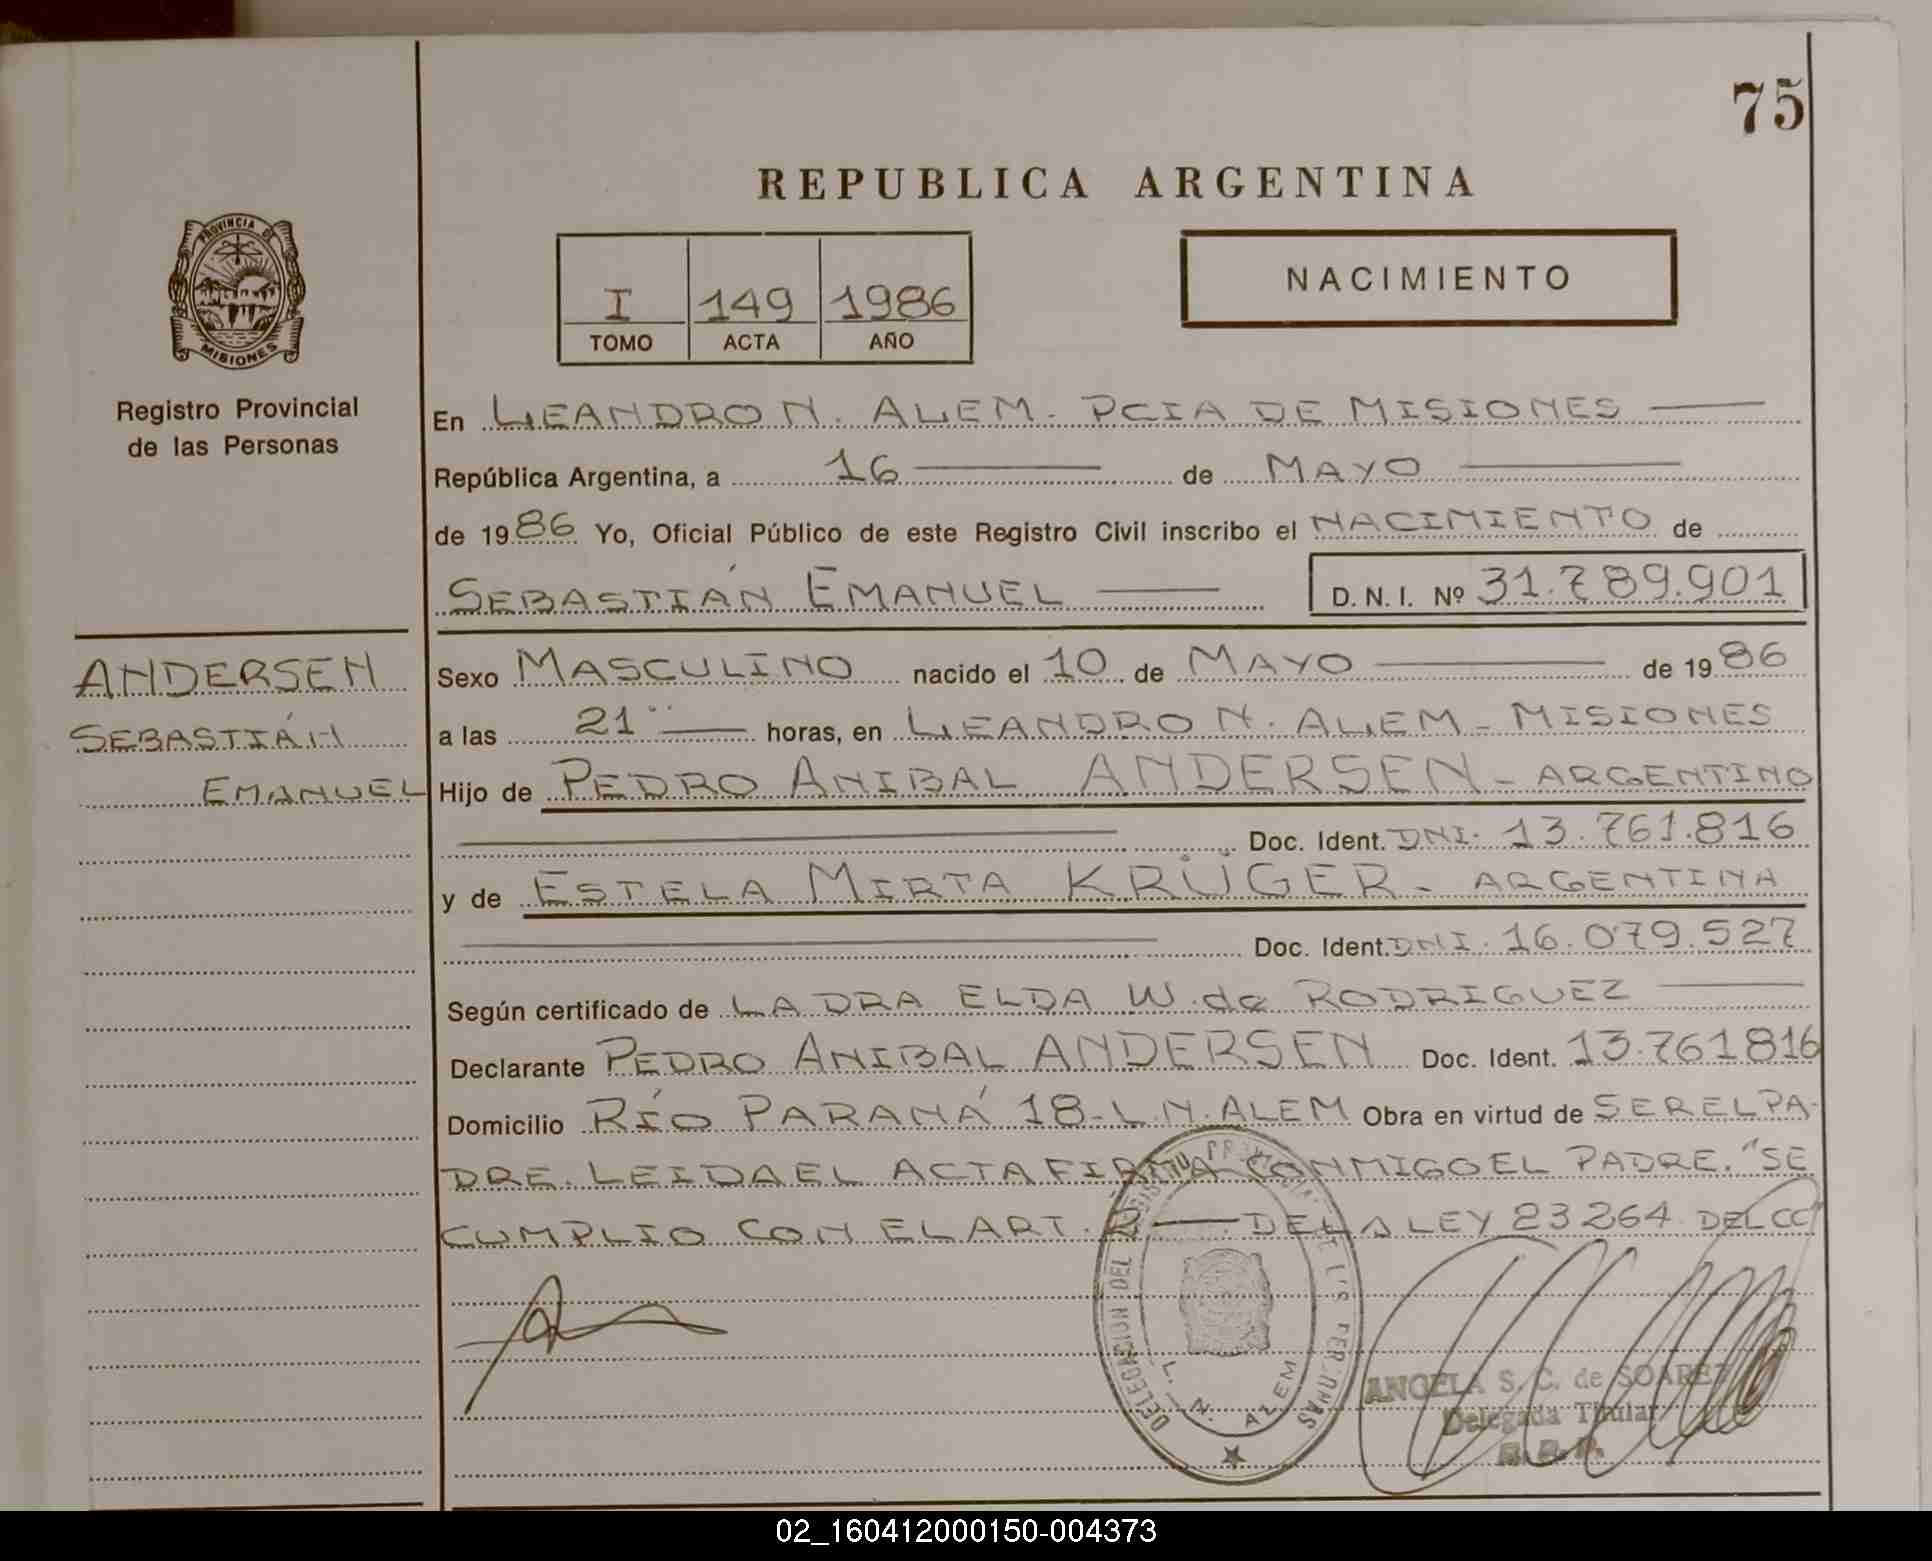 75
REPUBLICA ARGENTINA
PROVINCIA DE
MISIONES
Registro Provincial
de las Personas
I 149 1986
TOMO ACTA AÑO
NACIMIENTO
En LEANDRO N. ALEM. PCIA DE MISIONES
República Argentina, a 16 de MAYO
de 1986 Yo, Oficial Público de este Registro Civil inscribo el NACIMIENTO de
SEBASTIÁN EMANUEL D. N. I. Nº 31.789.901
ANDERSEN
SEBASTIÁN
EMANUEL
Sexo MASCULINO nacido el 10 de MAYO de 1986
a las 21 horas, en LEANDRO N. ALEM - MISIONES
Hijo de PEDRO ANIBAL ANDERSEN - ARGENTINO
Doc. Ident. DNI. 13.761.816
y de ESTELA MIRTA KRÜGER - ARGENTINA
Doc. Ident. DNI. 16.079.527
Según certificado de LA DRA ELDA W. de RODRIGUEZ
Declarante PEDRO ANIBAL ANDERSEN Doc. Ident. 13.761816
Domicilio RÍO PARANÁ 18 - L.N. ALEM Obra en virtud de SER EL PA-
DRE. LEIDA EL ACTA FIRMA CONMIGO EL PADRE. "SE
CUMPLIO CON EL ART. 2 DE LA LEY 23264 DEL CC
DELEGACION DEL
L. N. ALEM
ANGELA S. C. de SOAREZ
Delegada Titular
02_160412000150-004373